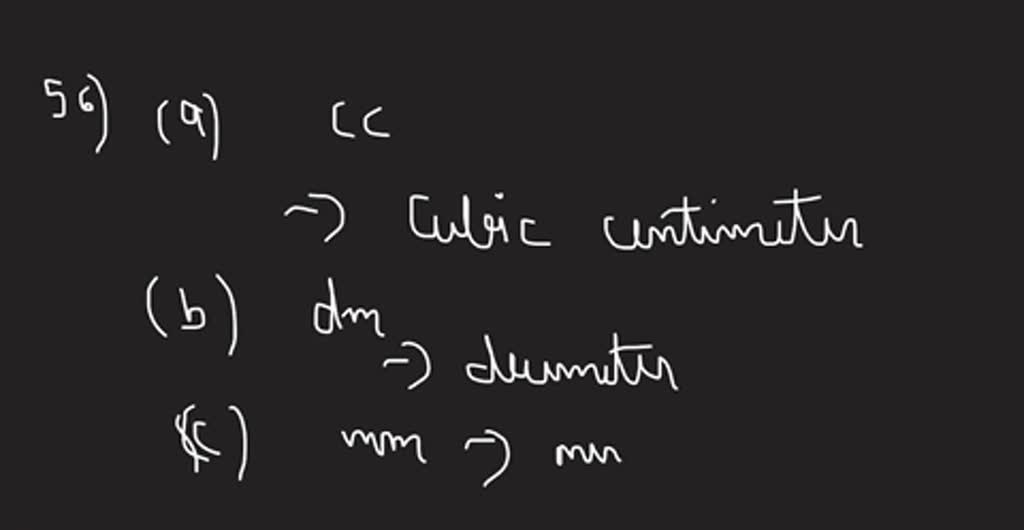 56) (a) cc
→ Cubic centimeter
(b) dm
→ decimeter
(c) mm →